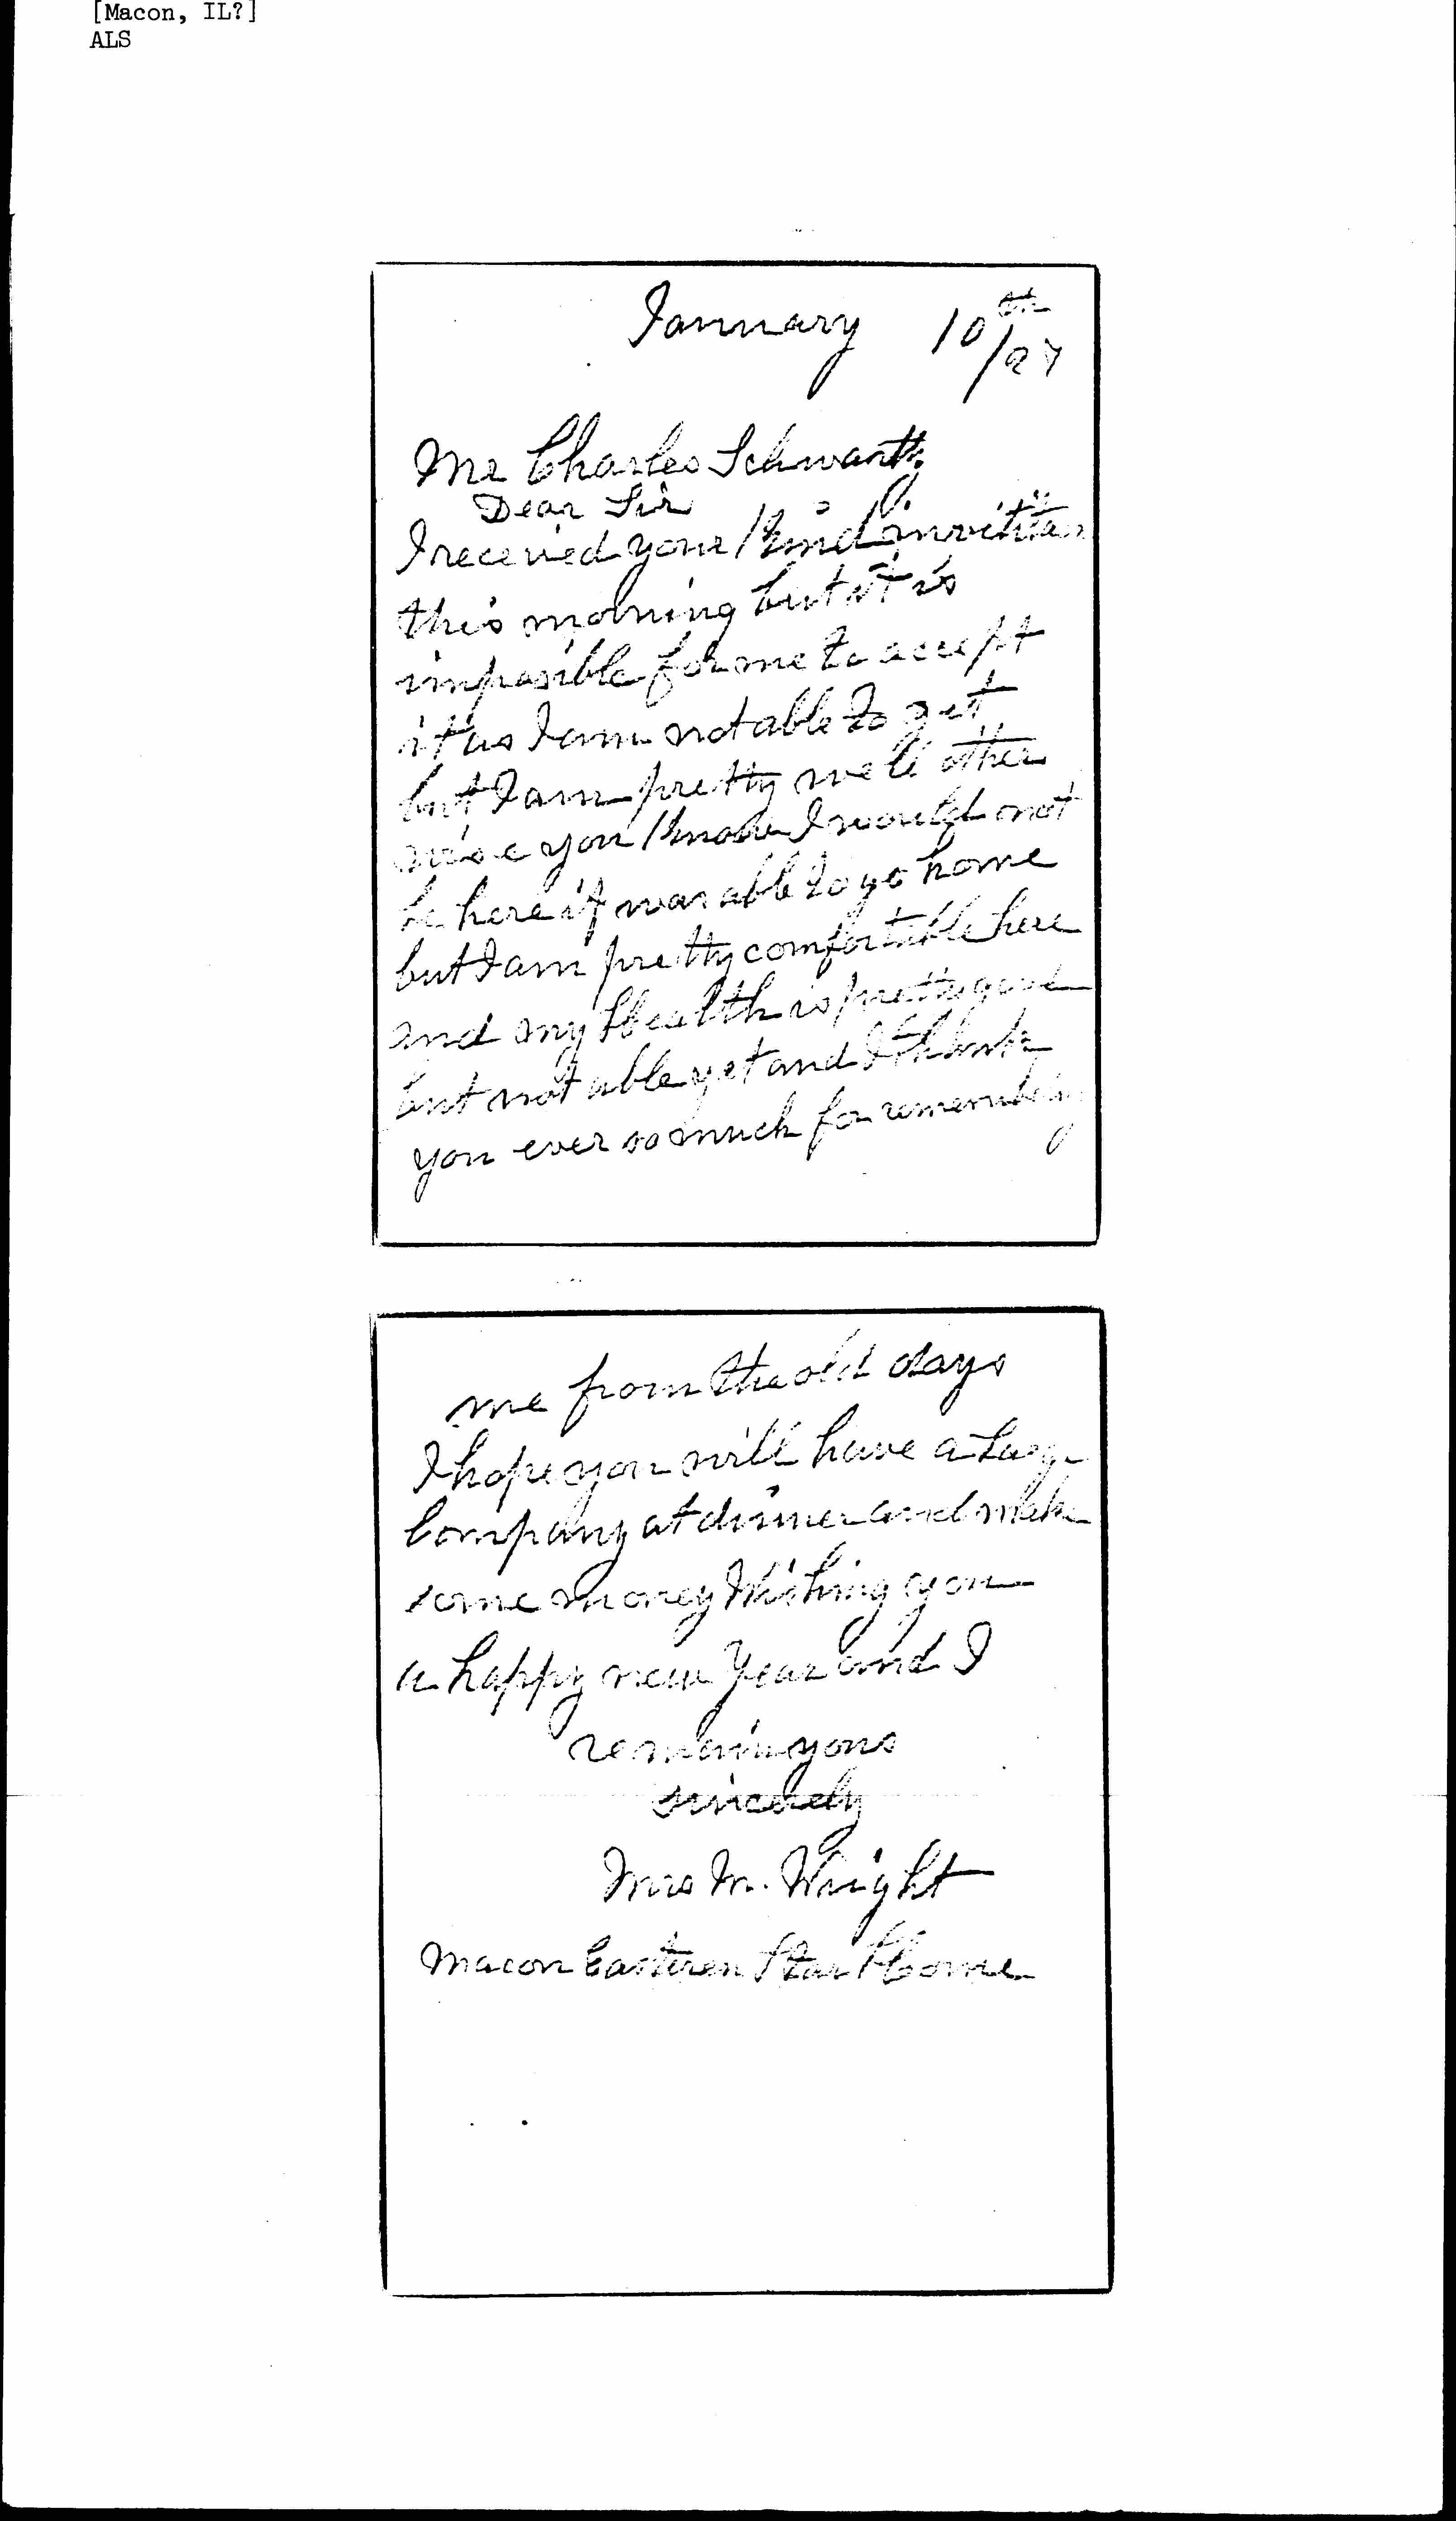 [Macon, IL?]
ALS
January 10th/27
Mr Charles Schwartz
Dear Sir
I received your kind invitita
this morning but it is
imposible for me to accept
it as I am not able to get
but I am pretty well other
wise you know I would not
be here if was able to go home
but I am pretty comfortable here
and my Health is pretty good
but not able yet and I thank
you ever so much for remembering
me from the old days
I hope you will have a large
Company at dinner and make
some money Wishing you
a happy new Year and I
remain yours
sincerely
Mrs M. Wright
Macon Easteren Star Home